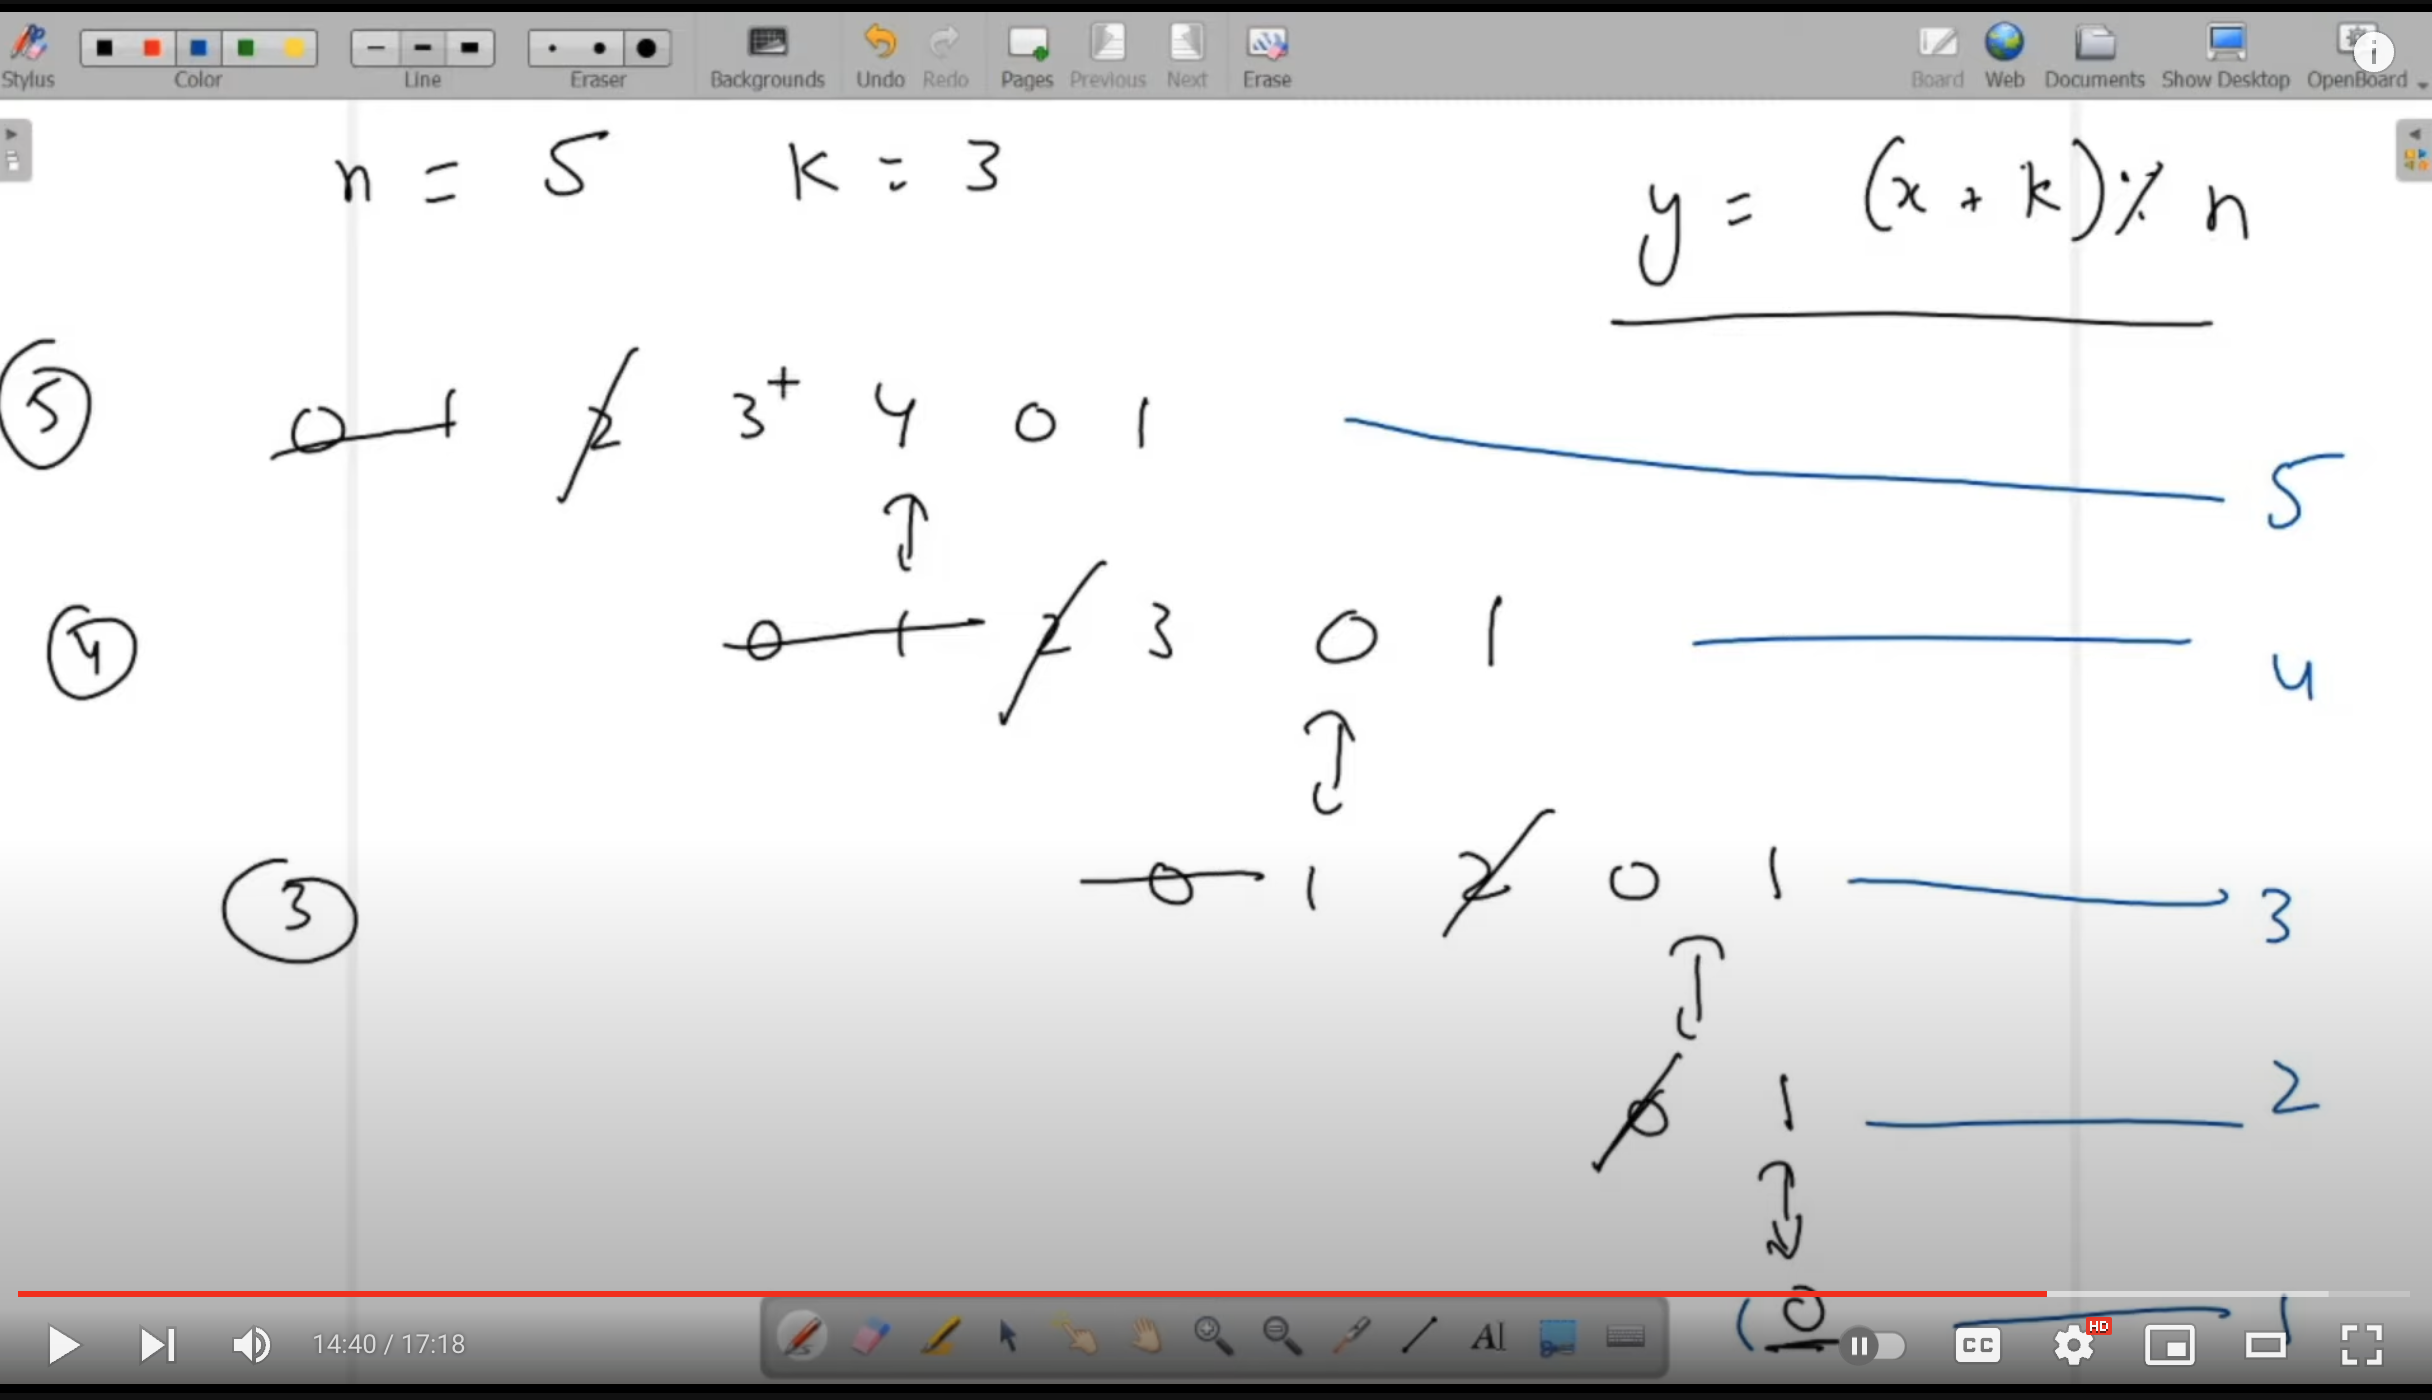 Stylus Color Line Eraser Backgrounds Undo Redo Pages Previous Next Erase Board Web Documents Show Desktop OpenBoard
n = 5 k = 3
y = (x + k) % n
5 0 1 2 3+ 4 0 1 5
4 0 1 2 3 0 1 4
3 0 1 2 0 1 3
0 1 2
0 1
14:40 / 17:18 AI CC HD